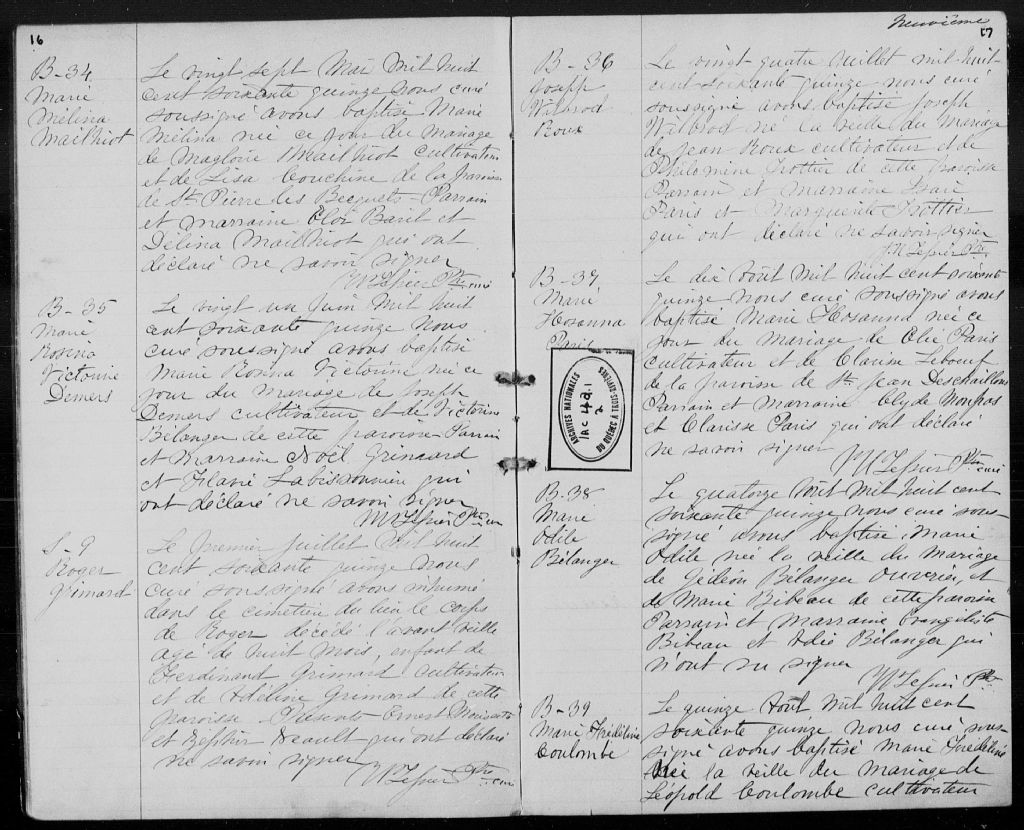 16
B-34
Marie
Mélina
Mailhiot
Le vingt sept Mai mil huit
cent soixante quinze nous curé
soussigné avons baptisé Marie
Mélina née ce jour du mariage
de Magloire Mailhiot cultivateur
et de Lisa Couchine de la paroisse
de St Pierre les Becquets - Parrain
et marraine Eloi Baril et
Délina Mailhiot qui ont
déclaré ne savoir signer
Ptre curé
B-35
Marie
Rosina
Victorine
Demers
Le vingt un Juin mil huit
cent soixante quinze nous
curé soussigné avons baptisé
Marie Rosina Victorine née ce
jour du mariage de Joseph
Demers cultivateur et de Victorine
Bélanger de cette paroisse Parrain
et Marraine Noël Grimard
et Labissonnière qui
ont déclaré ne savoir signer
Ptre curé
S-9
Roger
Grimard
Le premier Juillet mil huit
cent soixante quinze nous
curé soussigné avons inhumé
dans le cimetière du lieu le corps
de Roger décédé l'avant veille
agé de huit mois, enfant de
Ferdinand Grimard cultivateur
et de Adéline Grimard de cette
paroisse - Présents Ernest
et Zéphir qui ont déclaré
ne savoir signer
Ptre curé
neuvième
17
B-36
Joseph
Wilbrod
Roux
Le vingt quatre Juillet mil huit
cent soixante quinze nous curé
soussigné avons baptisé Joseph
Wilbrod né la veille du mariage
de Jean Roux cultivateur et de
Philomène Trottier de cette paroisse
Parrain et marraine
Paris et Marguerite Trottier
qui ont déclaré ne savoir signer
Ptre
B-37
Marie
Hosanna
Paris
Le dix Août mil huit cent soixante
quinze nous curé soussigné avons
baptisé Marie Hosanna née ce
jour du mariage de Elie Paris
cultivateur et de Clarisse Leboeuf
de la paroisse de St Jean Deschaillons
Parrain et Marraine Clyde Monpas
et Clarisse Paris qui ont déclaré
ne savoir signer
Ptre curé
ARCHIVES NATIONALES
DU QUÉBEC À TROIS-RIVIÈRES
B-38
Marie
Odile
Bélanger
Le quatorze Août mil huit cent
soixante quinze nous curé sous-
signé avons baptisé Marie
Odile née la veille du mariage
de Gédéon Bélanger ouvrier, et
de Marie Bibeau de cette paroisse
Parrain et Marraine Evangéliste
Bibeau et Adée Bélanger qui
n'ont su signer
Ptre
B-39
Marie Frédéline
Coulombe
Le quinze Août mil huit cent
soixante quinze nous curé sous-
signé avons baptisé Marie Frédéline
née la veille du mariage de
Léopold Coulombe cultivateur